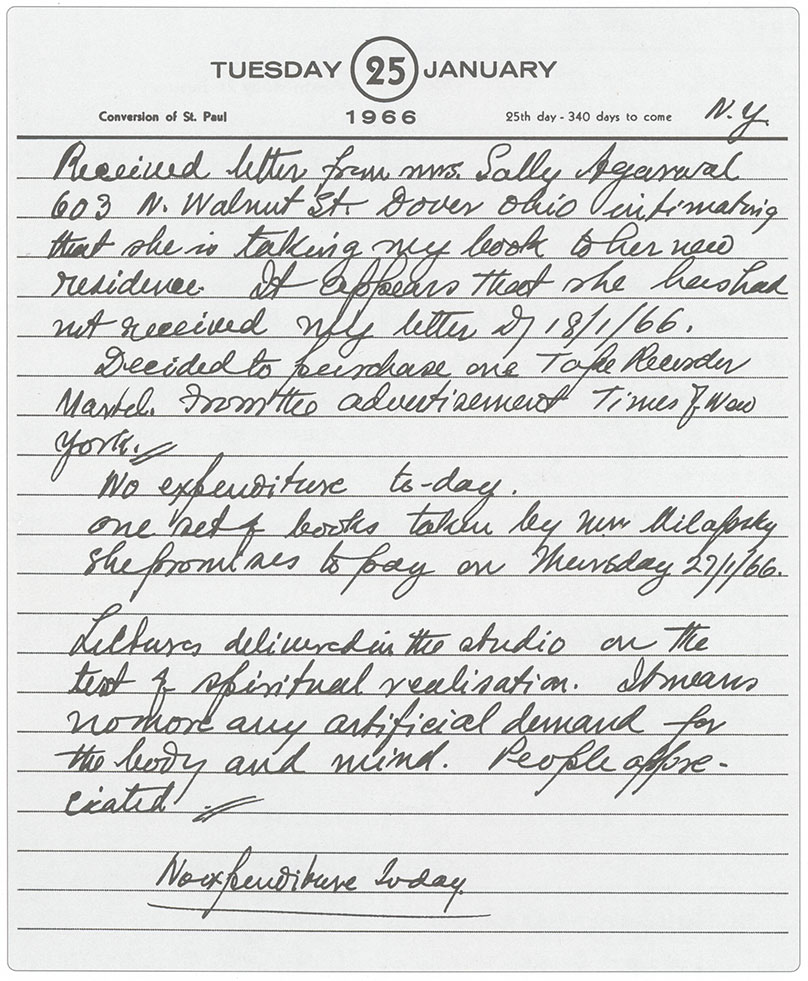 TUESDAY 25 JANUARY
Conversion of St. Paul 1966 25th day - 340 days to come N.Y.
Received letter from mrs. Sally Agarwal
603 N. Walnut St. Dover Ohio intimating
that she is taking my book to her new
residence. It appears that she has had
not received my letter D/ 18/1/66.
Decided to purchase one Tape Recorder
Martel. From the advertisement Times of New
York.
No expenditure to-day.
one set of books taken by Milafsky
She promises to pay on Thursday 27/1/66.
Lectures delivered in the studio on the
test of spiritual realisation. It means
no more any artificial demand for
the body and mind. People appre-
ciated
No expenditure today